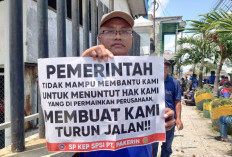 PEMERINTAH
TIDAK MAMPU MEMBANTU KAMI
UNTUK MENUNTUT HAK KAMI
YANG DI PERMAINKAN PERUSAHAAN,
MEMBUAT KAMI
TURUN JALAN!!
SP KEP SPSI PT. PAKERIN